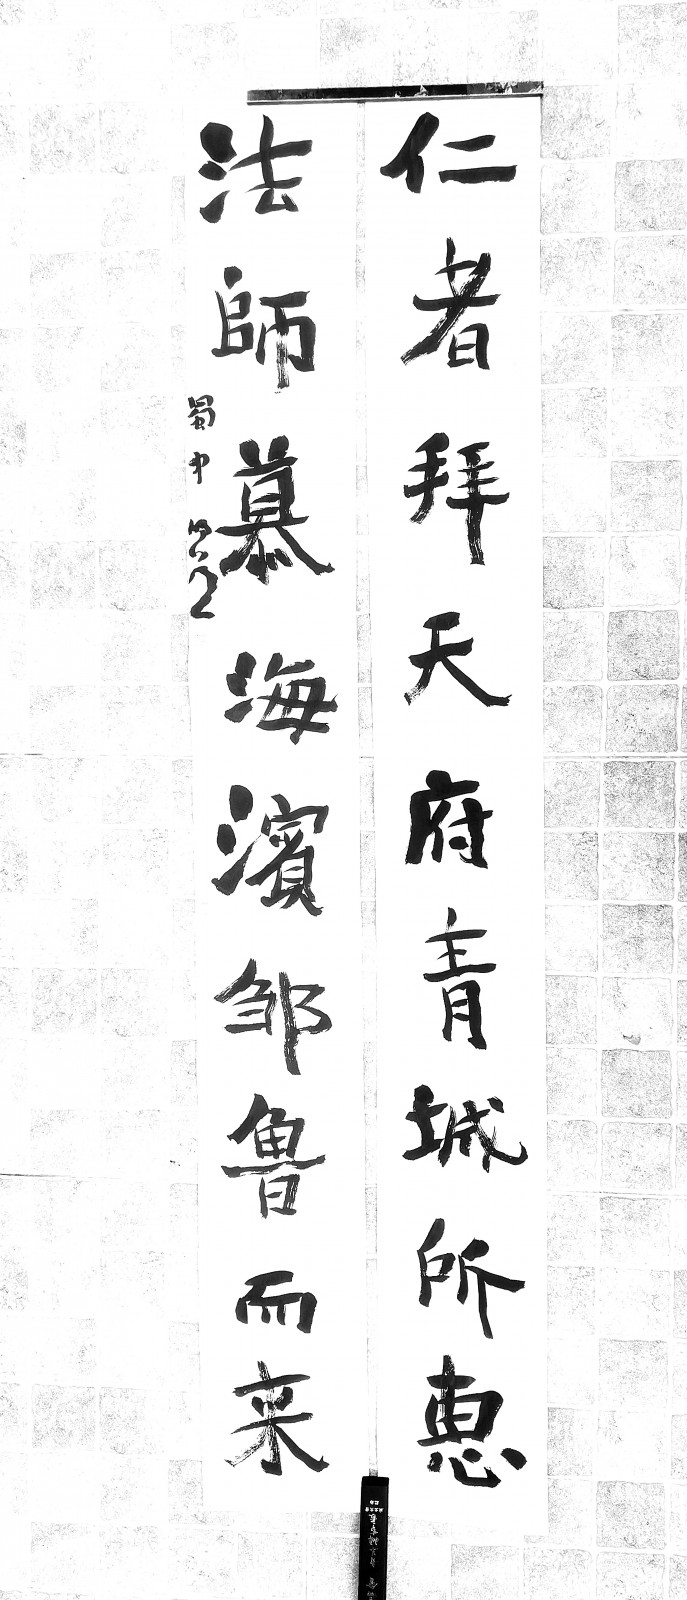 仁者拜天府青城所惠
法師慕海濱邹魯而来
蜀中